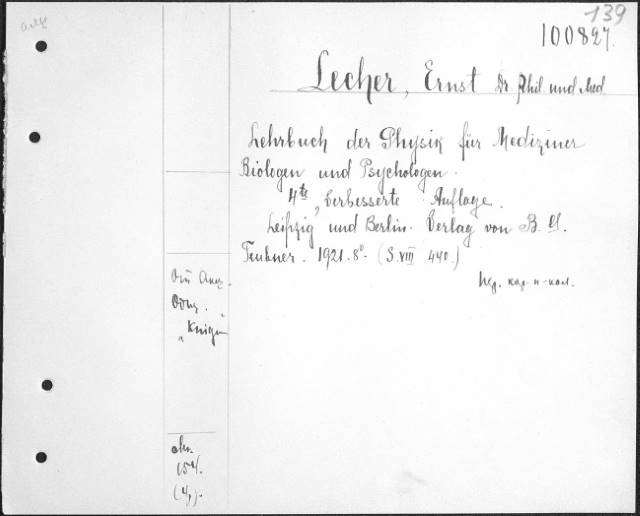 139
100827.
Lecher, Ernst Dr. Phil und Med
Lehrbuch der Physik für Mediziner
Biologen und Psychologen.
4te, verbesserte Auflage.
Leipzig und Berlin. Verlag von B. G.
Teubner. 1921. 8°. (S. VIII 440.)
"Knigin
154.
(4).